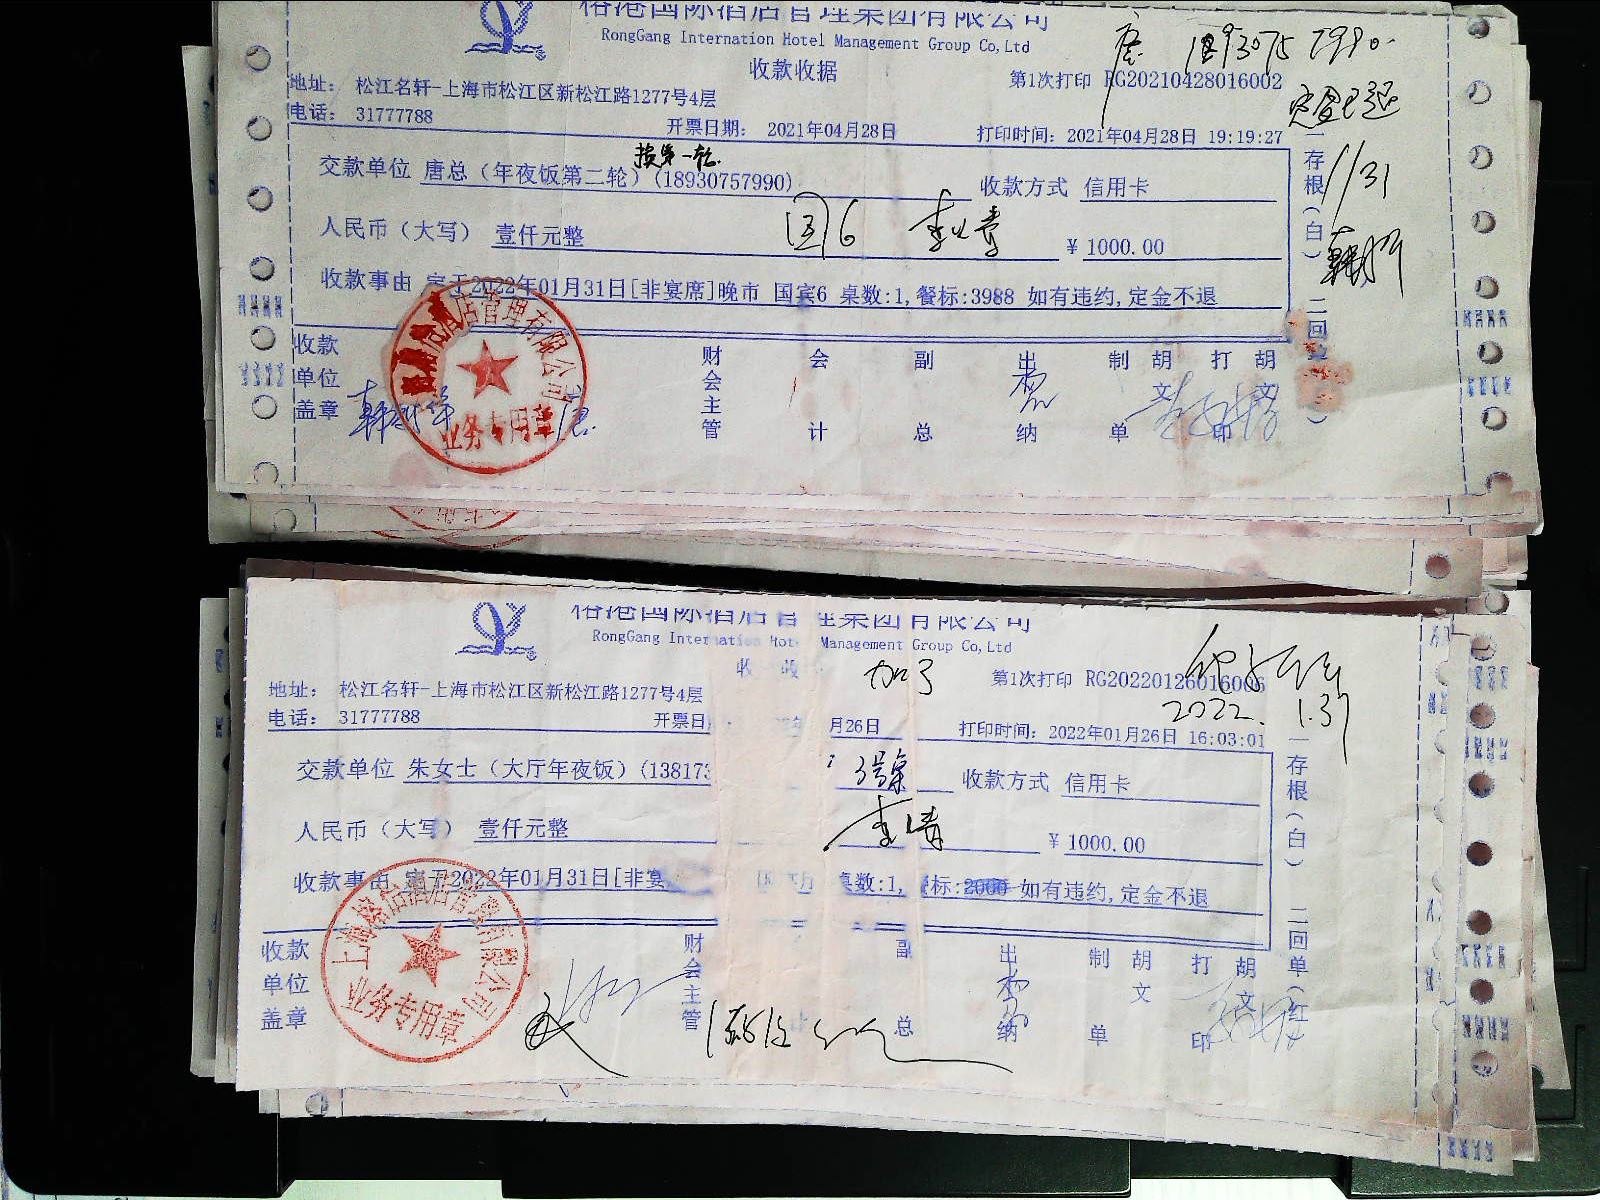 榕港国际酒店管理集团有限公司
RongGang Internation Hotel Management Group Co,Ltd
收款收据
唐 18930757990
第1次打印 RG20210428016002
地址： 松江名轩-上海市松江区新松江路1277号4层
定金已退
电话： 31777788
开票日期： 2021年04月28日
打印时间：2021年04月28日 19:19:27
换第一轮.
交款单位 唐总（年夜饭第二轮）(18930757990)
收款方式 信用卡
1/31
人民币（大写） 壹仟元整
国6
￥1000.00
收款事由 定于2022年01月31日[非宴席]晚市 国宾6 桌数:1,餐标:3988 如有违约,定金不退
存根(白) 二回
收款单位盖章
财会主管
会计
副总
出纳
制单
胡文
打印
胡文
酒店管理有限公司
业务专用章
榕港国际酒店管理集团有限公司
RongGang Internation Hotel Management Group Co,Ltd
收
加了
第1次打印 RG20220126016006
地址： 松江名轩-上海市松江区新松江路1277号4层
2022. 1.31
电话： 31777788
开票日
月26日
打印时间：2022年01月26日 16:03:01
交款单位 朱女士（大厅年夜饭）(138173
3号桌
收款方式 信用卡
人民币（大写） 壹仟元整
￥1000.00
收款事由 定于2022年01月31日[非宴
桌数:1, 餐标:2000 如有违约,定金不退
一存根(白) 二回单(红)
收款单位盖章
财会主管
副总
出纳
制单
胡文
打印
胡文
上海榕港酒店管理有限公司
业务专用章